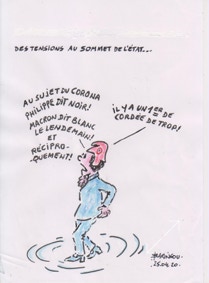 DES TENSIONS AU SOMMET DE L'ÉTAT...
AU SUJET DU CORONA
PHILIPPE DIT NOIR!
MACRON DIT BLANC
LE LENDEMAIN!
ET
RÉCIPRO-
QUEMENT!
IL Y A UN 1ER DE
CORDÉE DE TROP!
25.04.20.